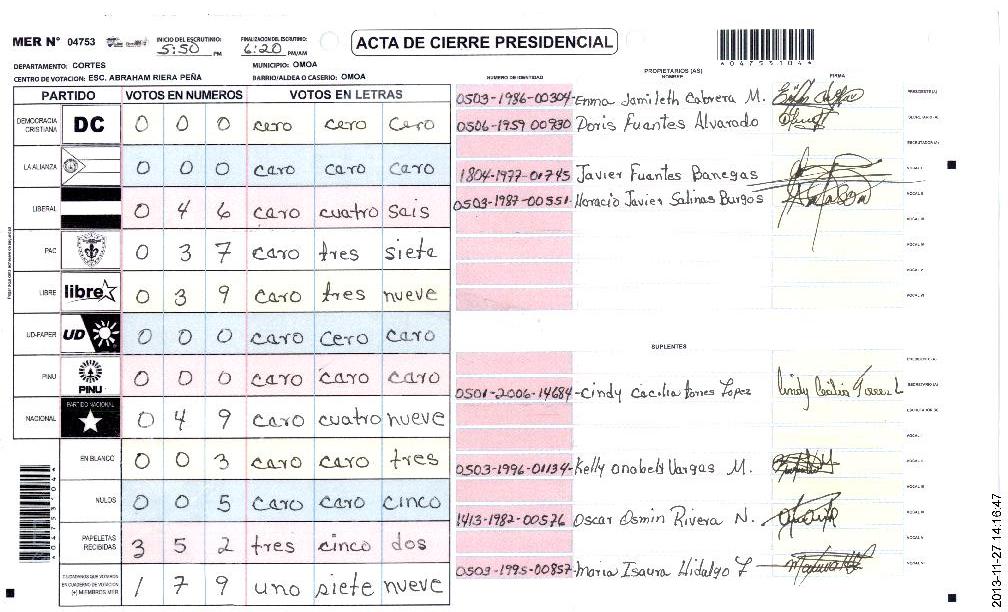 MER N° 04753
INICIO DEL ESCRUTINIO: 5:50 PM
FINALIZACION DEL ESCRUTINIO: 6:20 PM/AM
ACTA DE CIERRE PRESIDENCIAL
DEPARTAMENTO: CORTES
MUNICIPIO: OMOA
CENTRO DE VOTACION: ESC. ABRAHAM RIERA PEÑA
BARRIO/ALDEA O CASERIO: OMOA
PARTIDO VOTOS EN NUMEROS VOTOS EN LETRAS
DEMOCRACIA CRISTIANA DC 0 0 0 cero cero cero
LA ALIANZA 0 0 0 caro caro caro
LIBERAL 0 4 6 caro cuatro sais
PAC 0 3 7 caro tres siete
LIBRE libre 0 3 9 caro tres nueve
UD-FAPER UD 0 0 0 caro cero caro
PINU PINU 0 0 0 caro caro caro
NACIONAL PARTIDO NACIONAL 0 4 9 caro cuatro nueve
EN BLANCO 0 0 3 caro caro tres
NULOS 0 0 5 caro caro cinco
PAPELETAS RECIBIDAS 3 5 2 tres cinco dos
CIUDADANOS QUE VOTARON EN CUADERNO DE VOTACION (+) MIEMBROS MER 1 7 9 uno siete nueve
NUMERO DE IDENTIDAD PROPIETARIOS (AS) NOMBRE FIRMA
0503-1986-00304- Enma Jamileth Cabrera M. PRESIDENTE(A)
0506-1959 00930 Doris Fuentes Alvarado SECRETARIO(A)
ESCRUTADOR(A)
1804-1977-01745 Javier Fuentes Banegas VOCAL I
0503-1987-00551- Horacio Javier Salinas Burgos VOCAL II
VOCAL III
VOCAL IV
VOCAL V
VOCAL VI
SUPLENTES
PRESIDENTE(A)
0501-2006-14684- Cindy Cacilia Torres Lopez SECRETARIO(A)
VOCAL I
0503-1996-01134- Kelly Onabeli Vargas M. VOCAL II
VOCAL III
1413-1982-00526 Oscar Osmin Rivera N. VOCAL IV
VOCAL V
0503-1995-00857- Maria Isaura Hidalgo F VOCAL VI
0475310 4
2013-11-27 14:16:47